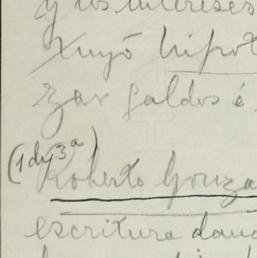 y los intereses
Xuyó hipot
zar saldos é
(1 dy 3ª)
Roberto Gonza
escritura dand